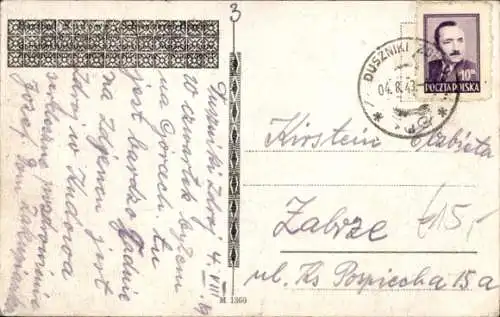 3
Duszniki Zdrój 4.VIII.
W czwartek byłem
na Górach. tu
jest bardzo ładnie
na Zdjęciu jest
Zdrój w Kudowa
serdeczne pozdrowienia
Józef
M 1360
DUSZNIKI ZDRÓJ
04.8.4
10 ZŁ
POCZTA POLSKA
Kirstein Elżbieta
Zabrze
£15,-
ul. Ks Pospiecha 15a